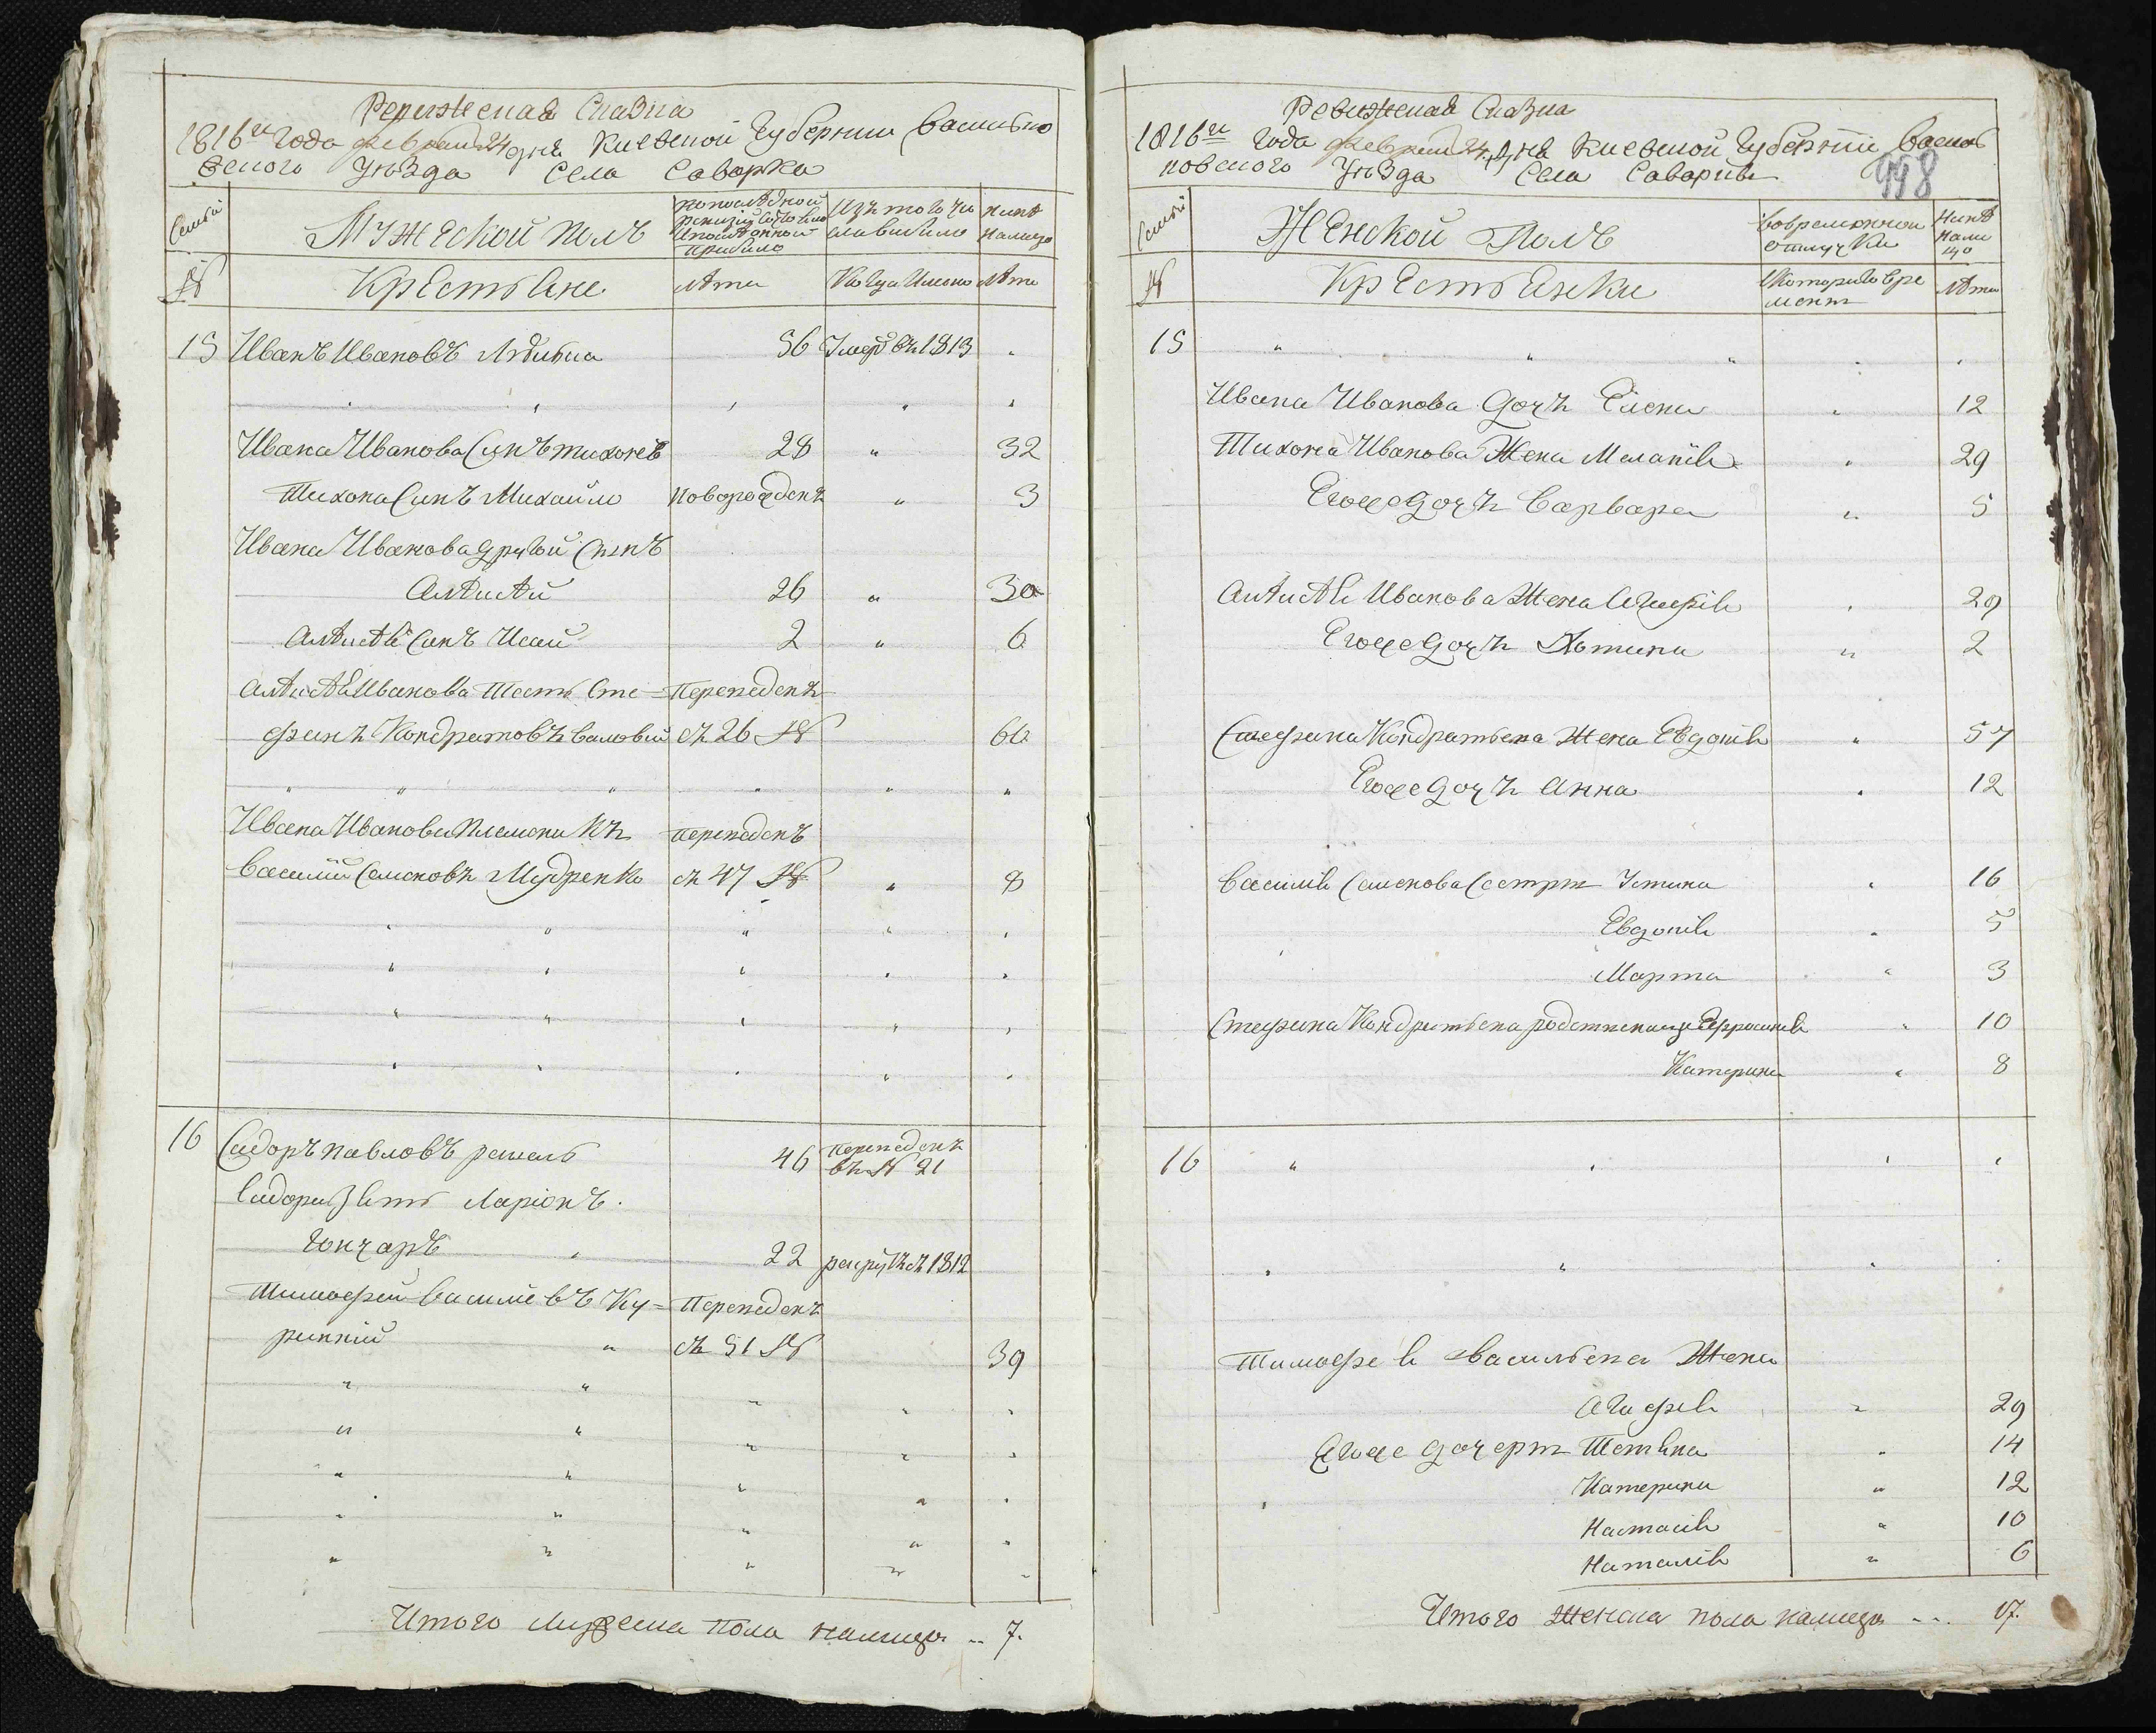 Ревижская Сказка
1816го года февраля 24 дня Киевской Губернии Василько
вского Уѣзда Села Саварка
Семьи
Мужеской полъ
по последной ревизии состояло и после оной прибыло
Изъ того числа выбыло
Нынѣ налицо
№
Крестьяне
лѣта
Когда именно
лѣта
15 Иванъ Ивановъ 56 Умер въ 1813
Ивана Иванова Сынъ тихонъ 28 " 32
Тихона Сынъ Михайло новорожденъ " 3
Ивана Иванова другой Сынъ
Алѣксѣй 26 " 30
Алѣксѣя Сынъ Исай 2 " 6
Алѣксѣя Иванова Тесть Сте= Переведенъ
фанъ Кондратовъ валовый съ 26 № 60
Ивана Иванова племеникъ переведенъ
Василий Семеновъ Мудренко съ 47 № " 8
16 Сидоръ павловъ 46 переведенъ
въ № 21
Сидора Зять Ларіонъ
Гончаръ " 22 рекрутъ 1812
Тимофей Василиевъ Ку= Переведенъ
" съ 51 № 39
Итого Мужеска пола налицо .. 7.
Ревижская Сказка
1816го Года февраля 24 дня Киевской Губерніи Василь
ковского Уѣзда Села Саварки
998
Семьи
Женской Полъ
Во временной отлучки
Нынѣ налицо
№
Крестьянки
Скоторого времени
лѣта
15
Ивана Иванова дочь Елена " 12
Тихона Иванова Жена Меланія " 29
Егоже дочь Варвара " 5
Алѣксѣя Иванова Жена Агафія " 29
Егоже дочь " 2
Стефана Кондратьева Жена Евдокія " 57
Егоже дочь Анна " 12
Василія Семенова Сестры Устина " 16
Евдокія " 5
Марта " 3
Стефана Кондратьева родственница Ефросинія " 10
Катерина " 8
16
Тимофея Васильева Жена
Агафія " 29
Егоже дочеры Тетяна " 14
Катерина " 12
Настасія " 10
Наталія " 6
Итого Женска пола налицо ... 17.